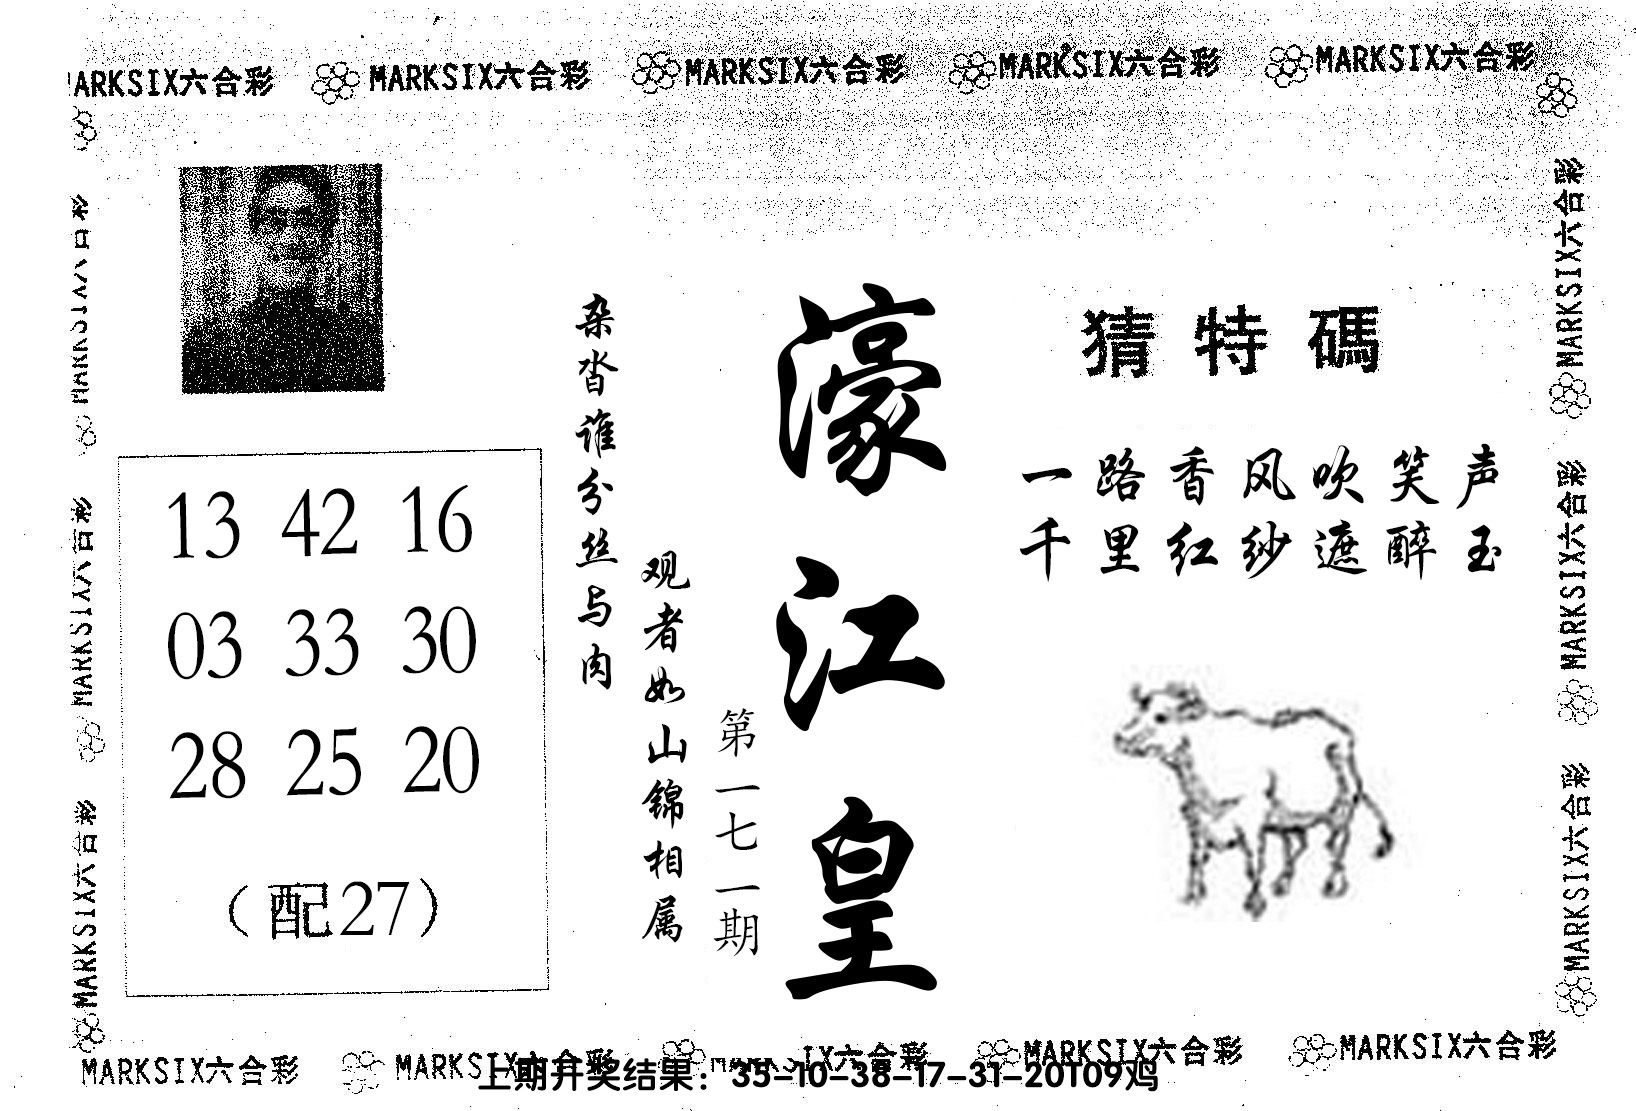 MARKSIX六合彩 MARKSIX六合彩 MARKSIX六合彩 MARKSIX六合彩 MARKSIX六合彩
MARKSIX六合彩
MARKSIX六合彩
MARKSIX六合彩
13 42 16
03 33 30
28 25 20
(配27)
杂沓谁分丝与肉
观者如山锦相属
第一七一期
濠江皇
猜特碼
一路香风吹笑声
千里红纱遮醉玉
MARKSIX六合彩
MARKSIX六合彩
MARKSIX六合彩
MARKSIX六合彩 MARKSIX六合彩 MARKSIX六合彩 MARKSIX六合彩 MARKSIX六合彩
上期开奖结果：35-10-38-17-31-20T09鸡